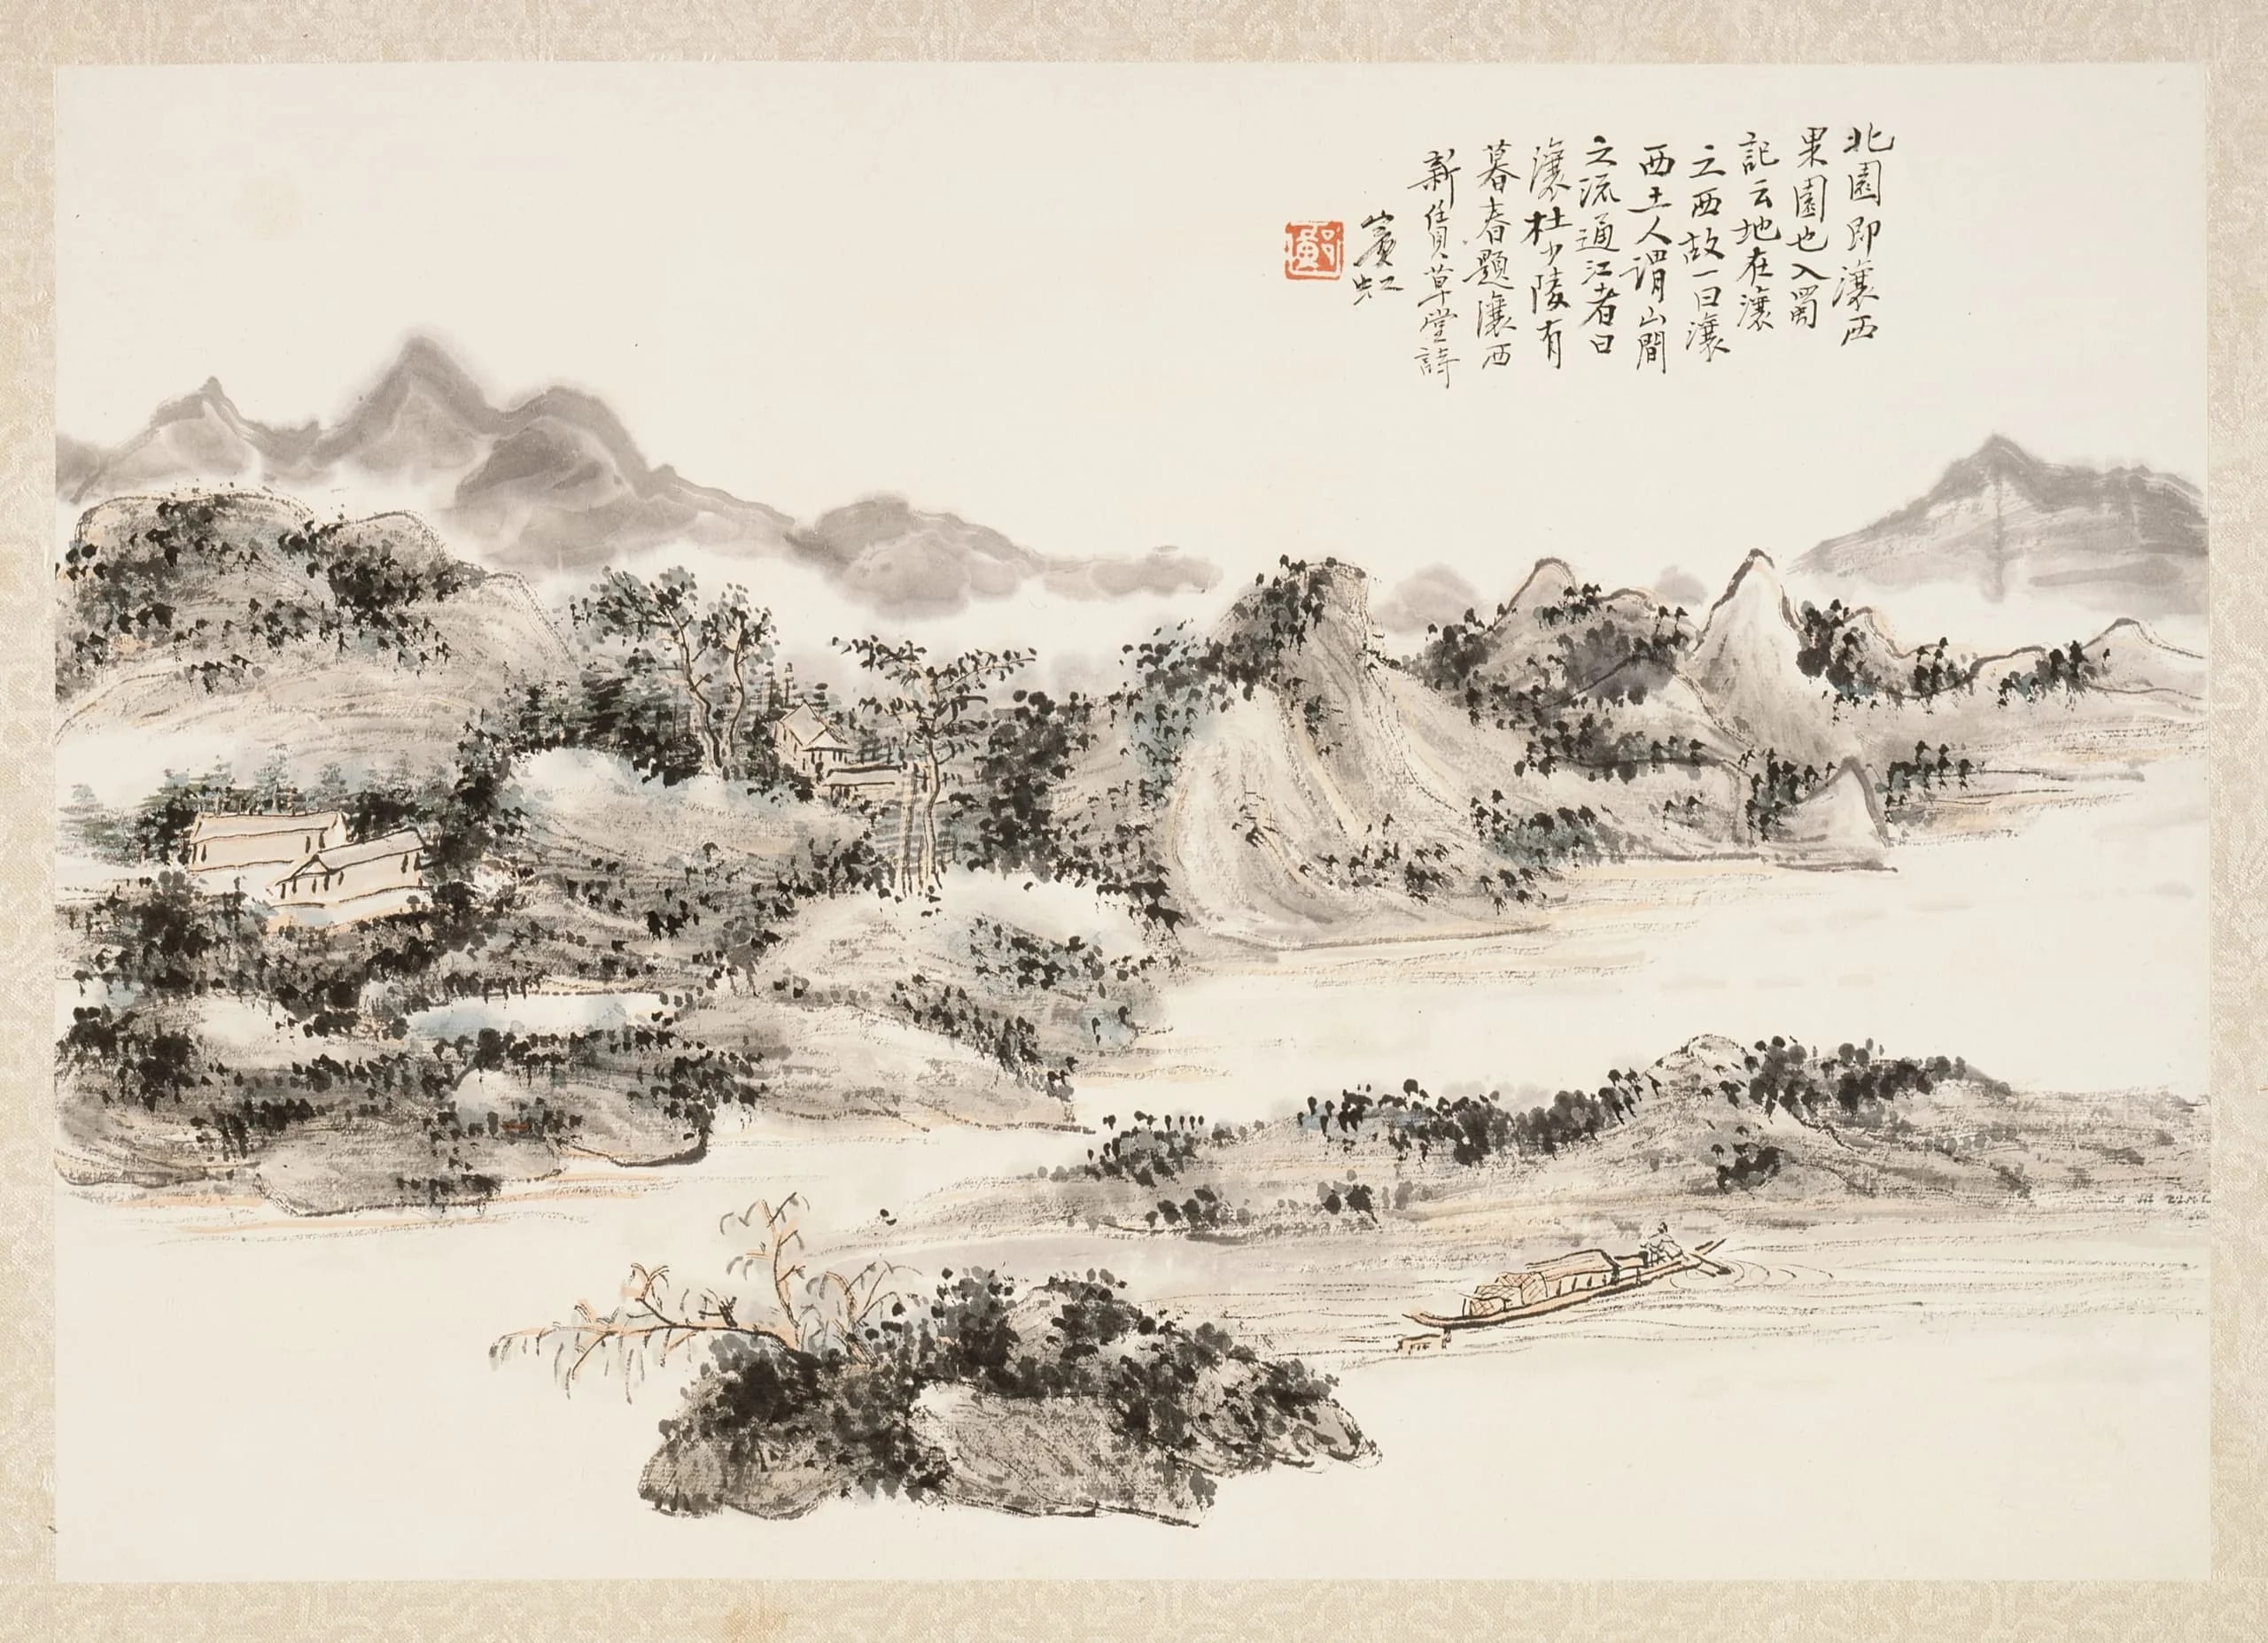 北園即瀼西
果園也入蜀
記云地在瀼
之西故一曰瀼
西土人謂山間
之流通江者曰
瀼杜少陵有
暮春題瀼西
新賃草堂詩
賓虹